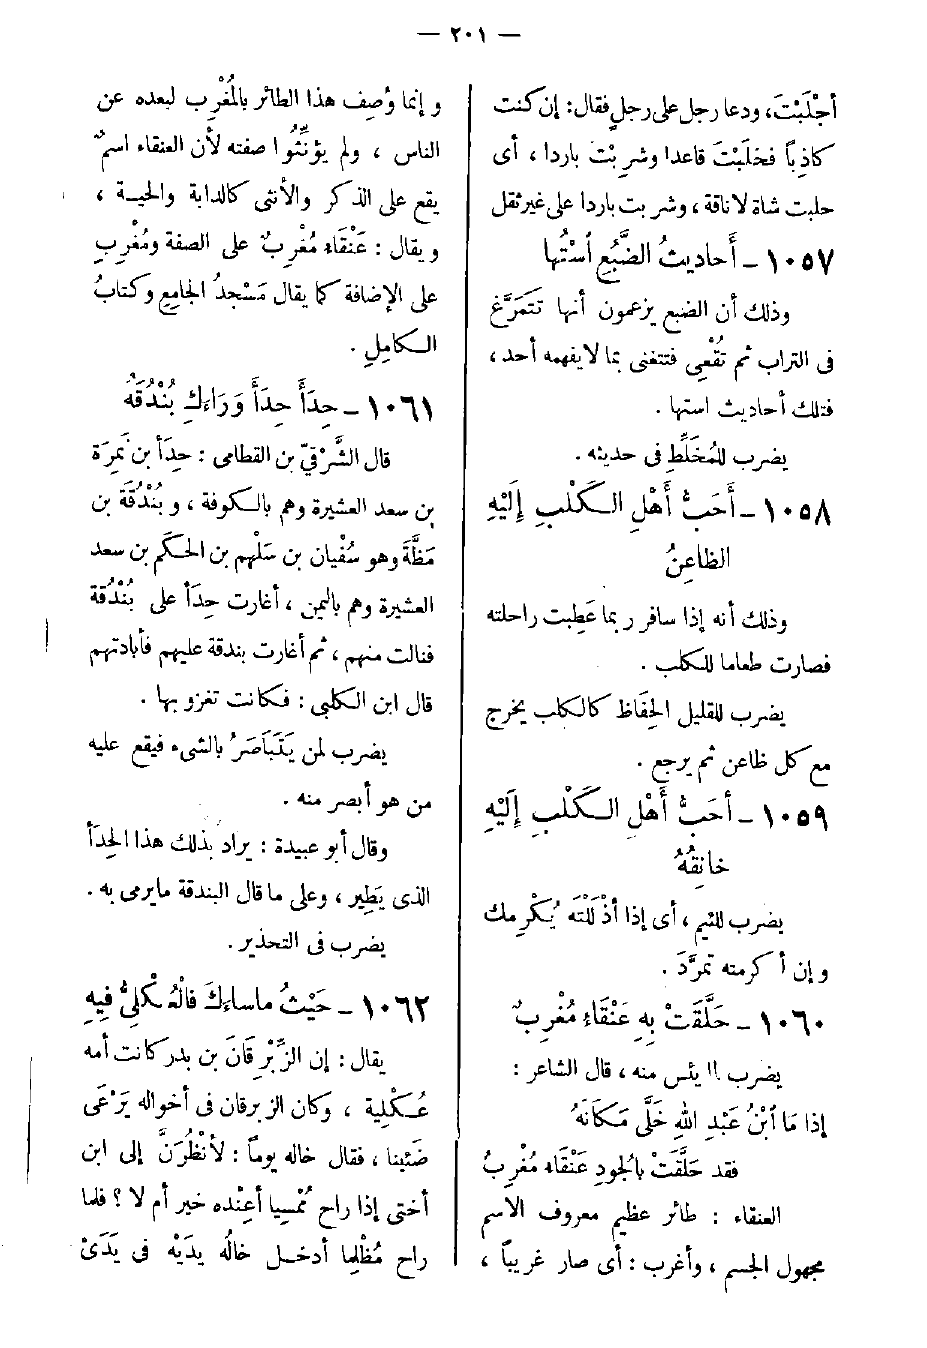 — ٢٠١ —
أجْلَبْتَ، ودعا رجل على رجلٍ فقال: إن كنت
كاذِباً فحَلَبْتَ قاعدا وشرِبْتَ باردا ، أى
حلبت شاة لا ناقة ، وشربت باردا على غير ثقل
١٠٥٧ – أَحَاديثُ الضَّبُعِ أسْتُها
وذلك أن الضبع يزعمون أنها تَتَمَرَّغ
فى التراب ثم تُقْعِى فتتغنى بما لا يفهمه أحد ،
فتلك أحاديث استها .
يضرب للمُخَلِّطِ فى حديثه .
١٠٥٨ – أَحَبُّ أَهْلِ الكَلْبِ إِلَيْهِ
الظاعِنُ
وذلك أنه إذا سافر ربما عَطِبت راحلته
فصارت طعاما للكلب .
يضرب للقليل الحِفَاظ كالكلب يخرج
مع كل ظاعن ثم يرجع .
١٠٥٩ – أحَبُّ أَهْلِ الكَلْبِ إِلَيْهِ
خانِقُهُ
يضرب للئيم ، أى إذا أذْلَلْتَه يُكْرِمك
وإن أكرمته تمرَّدَ .
١٠٦٠ – حَلَّقَتْ بِهِ عَنْقَاء مُغْرِبٌ
يضرب لما يئس منه ، قال الشاعر :
إذا مَا ٱبْنُ عَبْدِ اللهِ خَلَّى مَكَانَهُ
فقد حَلَّقَتْ بالجُودِ عَنْقَاء مُغْرِبُ
العنقاء : طائر عظيم معروف الاسم
مجهول الجسم ، وأغرب : أى صار غريباً ،
وإنما وُصِف هذا الطائر بالمُغْرِب لبعده عن
الناس ، ولم يؤنِّثُوا صفته لأن العنقاء اسمٌ
يقع على الذكر والأنثى كالدابة والحية ،
ويقال : عَنْقَاء مُغْرِبٌ على الصفة ومُغْرِبِ
على الإضافة كما يقال مَسْجدُ الجامِعِ وكتابُ
الكامِلِ .
١٠٦١ – حِدَأَ حِدَأَ وَرَاءَكِ بُنْدُقَهُ
قال الشَّرْقىّ بن القطامى : حِدَأ بن نَمِرَة
بن سعد العشيرة وهم بالكوفة ، وبُنْدُقَة بن
مَظَّةَ وهو سُفْيان بن سَلْهم بن الحكم بن سعد
العشيرة وهم باليمن ، أغارت حِدَأ على بُنْدُقة
فنالت منهم ، ثم أغارت بندقة عليهم فأبادتهم
قال ابن الكلبى : فكانت تغزو بها .
يضرب لمن يَتَبَاصَرُ بالشىء فيقع عليه
من هو أبصر منه .
وقال أبو عبيدة : يراد بذلك هذا الحِدَأ
الذى يَطِير ، وعلى ما قال البندقة ما يرمى به .
يضرب فى التحذير .
١٠٦٢ – حَيْثُ ماساءَكَ فالْعُكْلِىُّ فِيهِ
يقال : إن الزِّبْرِقَانَ بن بدر كانت أمه
عُكْلية ، وكان الزبرقان فى أخواله يَرْعَى
ضَئِينا ، فقال خاله يوماً : لأنْظُرَنَّ إلى ابن
أختى إذا راح مُمْسِيا أعِنْده خير أم لا ؟ فلما
راح مُظْلِما أدخل خالُه يدَيْه فى يَدَىْ